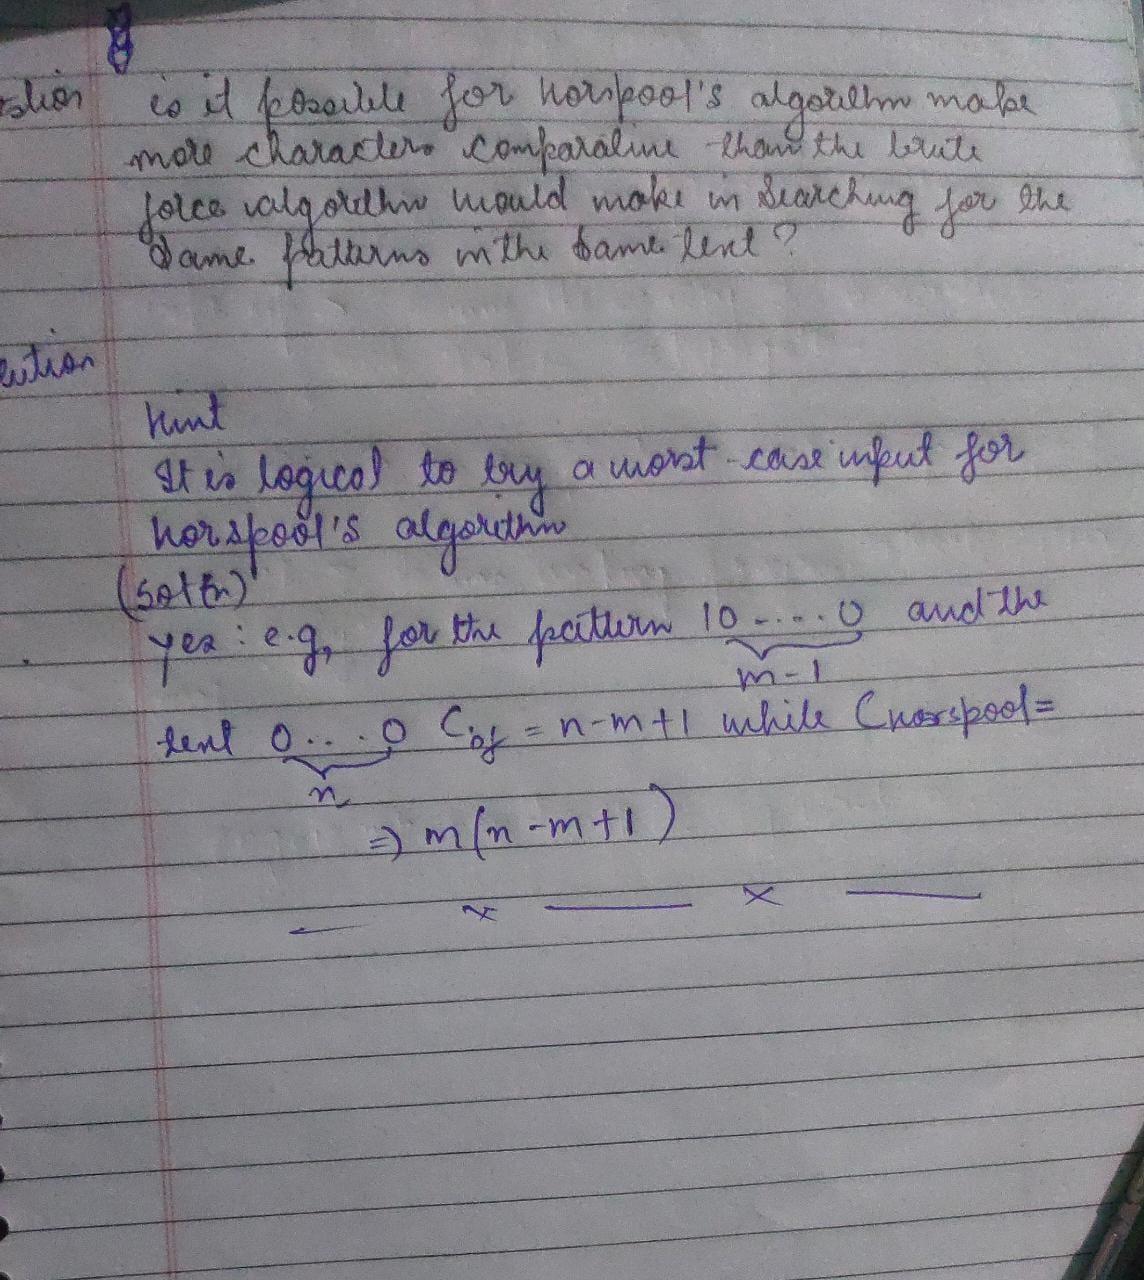 is it possible for horspool's algorithm make
more characters comparative than the brute
force algorithm would make in Searching for the
Same patterns in the same text ?
ution
hint
It is logical to try a worst-case input for
horspool's algorithm
(soltn)
yes : e.g, for the pattern 10 ....0 and the
m-1
text 0....0 Cbf = n-m+1 while Chorspool=
n
⇒ m(n-m+1)
x x